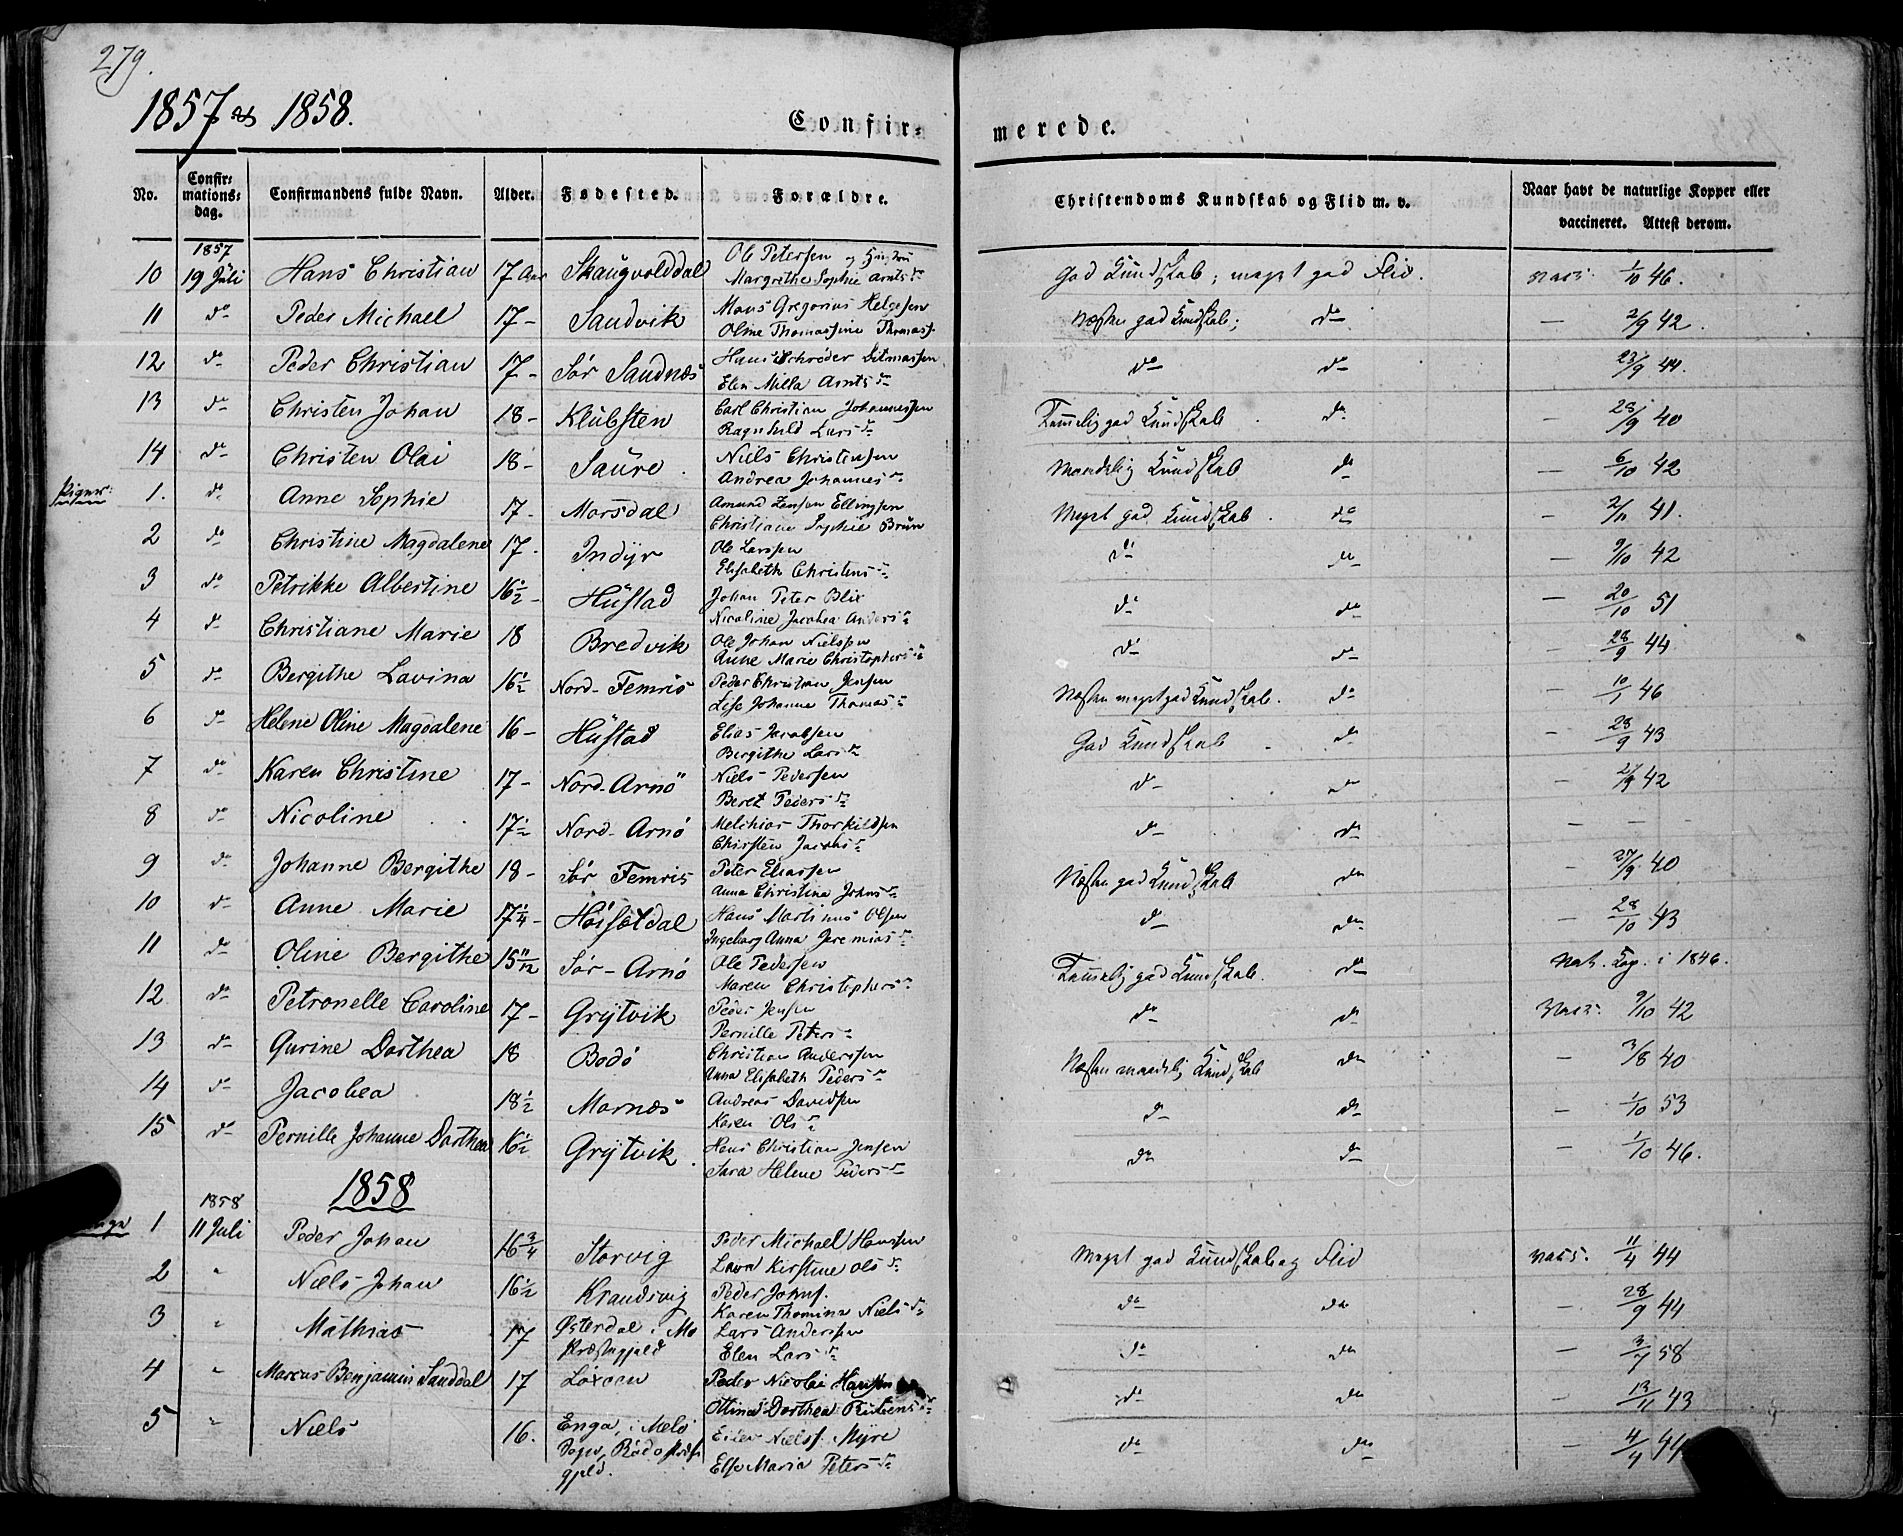 279.
1857 og 1858.
Confir=
merede.
No. Confir=mations=dag. Confirmandens fulde Navn. Alder. Fødested. Forældre. Christendoms Kundskab og Flid m. v. Naar havt de naturlige Kopper eller vaccineret. Attest derom.
1857
10 19 Juli Hans Christian 17 Aar Skaugvolddal Ole Petersen og Margrethe Sophie Arnts dr God Kundskab; meget god Flid. vacc. 1/10 46.
11 do Peder Michael 17 - Sandvik Mons Gregorius Helgesen Oline Thomassine Thomass Næsten god Kundskab; do — 2/9 42.
12 do Peder Christian 17 - Sør Sandnæs Hans Schrøder Ditmassen Elen Milla Arnts dr do do 23/9 44.
13 do Christen Johan 18 - Klubsten Carl Christian Johannessen Ragnhild Lars dr Temmelig god Kundskab do — 28/9 40
14 do Christen Olai 18 - Saure Niels Christensen Andrea Johannes dr Maadelig Kundskab do — 6/10 42
Piger:
1. do Anne Sophie 17 - Morsdal Amund Ellingsen Christiane Sophie Brun Meget god Kundskab. do — 2/11 41.
2 do Christine Magdalene 17 - Indyr Ole Larssen Elisabeth Christens dr do do — 9/10 42
3 do Petrikke Albertine 16 1/2 - Hustad Johan Peter Blix Nicoline Jacobea Anders dr do do — 20/10 51
4 do Christiane Marie 18 Bredvik Ole Johan Nielssen Anne Marie Christophers dr do do — 28/9 44
5 do Bergithe Lavina 16 1/2 Nord-Femris Peder Christian Jensen Lise Johanne Thomas dr Næsten meget god Kundskab. do — 10/1 46
6 do Helene Oline Magdalene 16 - Hustad Elias Jacobsen Bergithe Lars dr God Kundskab do — 28/9 43
7 do Karen Christine 17 - Nord-Arnö Niels Pedersen Beret Peders dr do do — 27/9 42
8 do Nicoline 17 1/2 Nord-Arnø Melchior Thorkildsen Christen Jacobs dr do do — — —
9 do Johanne Bergithe 18 - Sør Femris Peter Eliassen Anna Christina Johns dr Næsten god Kundskab do — 27/9 40
10 do Anne Marie 17 1/4 - Høisetdal Hans Martinus Olsen Ingeborg Anna Jeremias dr do do — 28/10 43
11 do Oline Bergithe 15 11/12 Sør-Arnø Ole Pedersen Maren Christophers dr Temmelig god Kundskab. do Nat. Kop. i 1846.
12 do Petronelle Caroline 17 - Grytvik Peder Jensen Pernille Peters dr do do Vacc. 9/10 42
13 do Gurine Dorthea 18 Bodö Christian Anderssen Anna Elisabeth Peders dr Næsten maadelig Kundskab do — 3/8 40
14 do Jacobea 18 1/2 Mornæs Andreas Davidsen Karen Ols dr do do — 1/10 53
15 do Pernille Johanne Dorthea 16 1/2 Grytvik Hans Christian Jensen Sara Helene Peders dr do do — 1/10 46.
1858
1858
1 11 Juli Peder Johan 16 3/4 Storvig Peder Michael Hanssen Lava Kirstine Ols dr Meget god Kundskab og Flid vacc. 11/4 44
2 " Niels Johan 16 1/2 Krandsvig Peder Johns. Karen Thomina Niels dr do do — 28/9 44
3 " Mathias 17 Østerdal i Mo Præstegjeld Lars Anderssen Elen Lars dr do do — 3/7 58
4 " Marcus Benjamin Sanddal 17 Peder Nicolai Hansen Ottina Dorthea do do — 13/11 43
5 " Niels 16. Enga, i Melö Sogn, Rödö Præstegjeld. Eiler Niels. Myre Else Maria Peters dr do do — 4/9 44